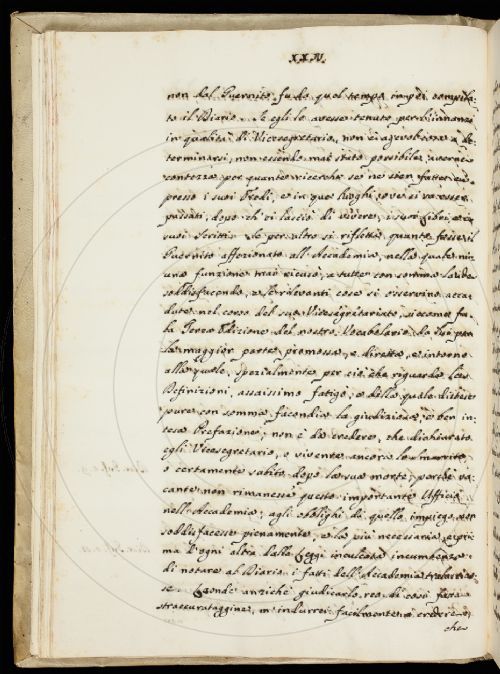 XXIV.
non dal Guernito fu da quel tempo in poi compila-
to il Diario. Se egli lo avesse tenuto per l'innanzi
in qualità di Vicesegretario, non è agevol cosa a de-
terminarsi, non essendo mai stato possibile averne
contezza per quante ricerche se ne sien fatte, e ap-
presso i suoi Eredi, e in que' luoghi, ove si
passati, dopo ch'ei lasciò di vivere, i suoi Libri, e i
suoi Scritti. Se per altro si rifletta, quanto fosse il
Guernito affezionato all'Accademia, nella quale niu-
na funzione mai ricusò, a tutte con somma lode
soddisfacendo, e le rilevanti cose si osservino acca-
dute nel corso del suo Vicesegretariato, siccome fu
la Terza Edizione del nostro Vocabolario da lui per
la maggior parte promossa, e diretta, e intorno
alla quale, spezialmente per ciò che riguarda le
Definizioni, assaissimo fatigò, e della quale distese
pure con somma facondia la giudiziosa, e ben in-
tesa Prefazione; non è da credere, che dichiarato
egli Vicesegretario, e vivente ancora lo Smarrito,
o certamente subito dopo la sua morte, perchè va-
cante non rimanesse questo importante Ufficio
nell'Accademia, agli obblighi di quello impiego non
soddisfacesse pienamente, e la più necessaria, e pri-
ma d'ogni altra dalle Leggi inculcata incumbenza
di notare al Diario i fatti dell'Accademia tralascias-
se. Laonde anzichè giudicarlo reo di così fatta
straccurataggine, m'indurrei facilmente a credere,
che